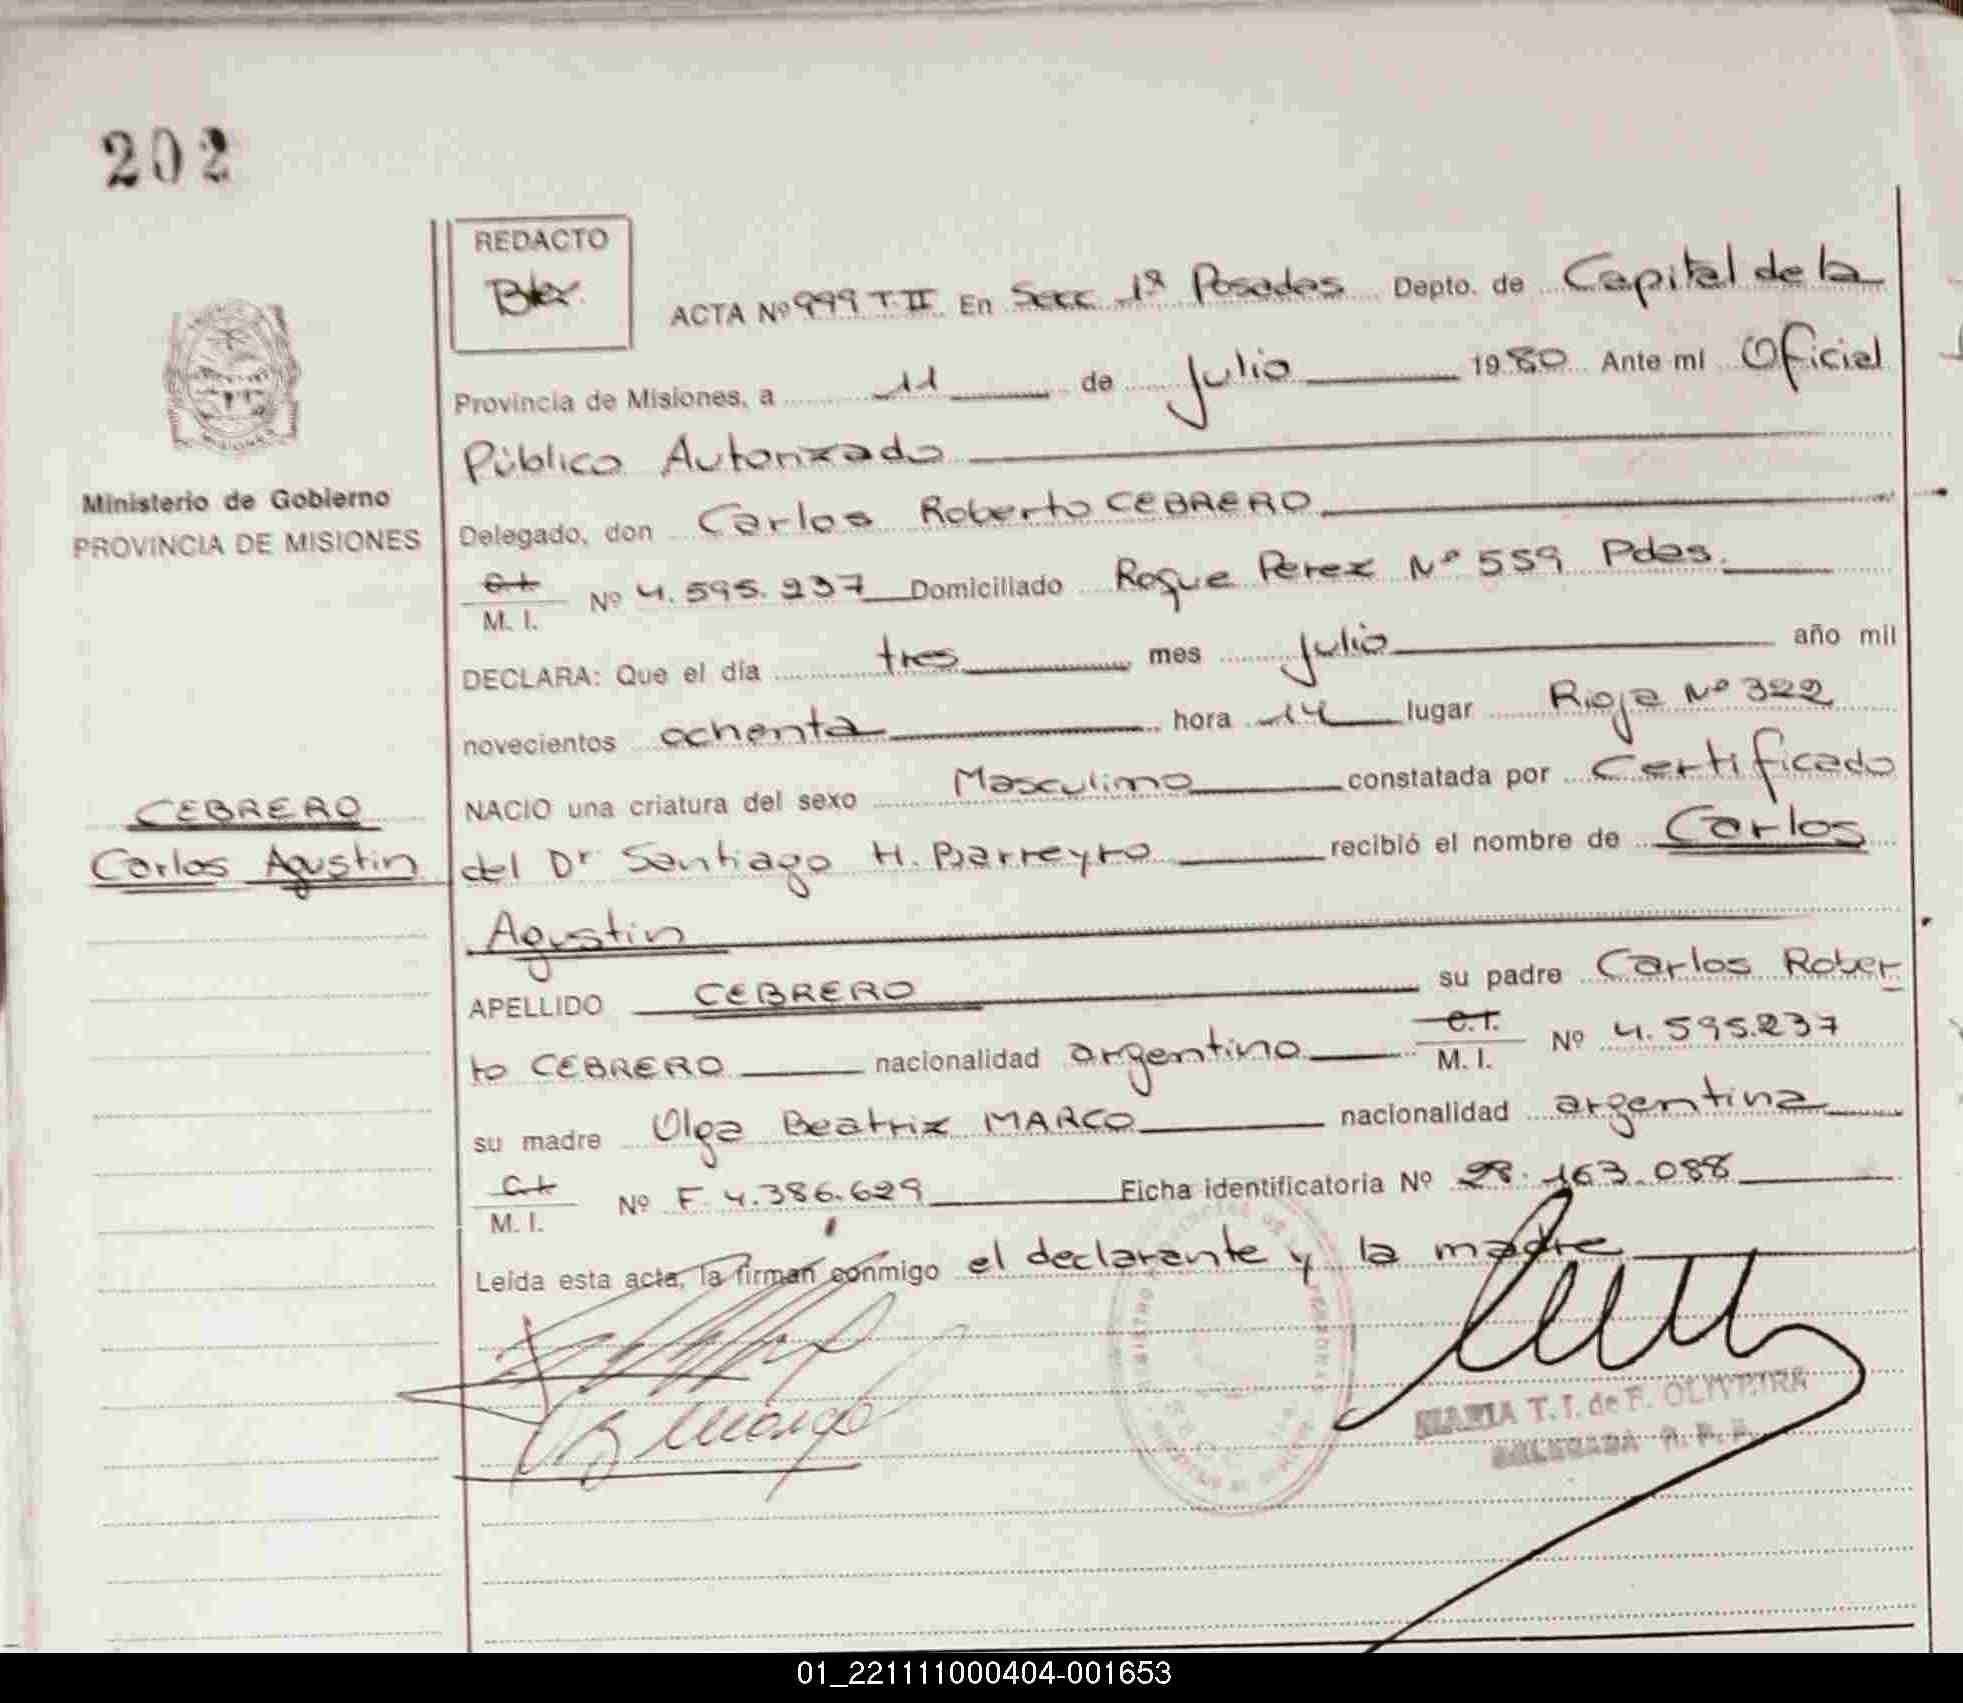 202
REDACTO
ACTA Nº 999 T. II En Secc 1ª Posadas Depto. de Capital de la
Provincia de Misiones, a 11 de Julio 1980 Ante mi Oficial
Público Autorizado
MISIONES
Ministerio de Gobierno
PROVINCIA DE MISIONES
Delegado, don Carlos Roberto CEBRERO
C.I.
M. I. Nº 4.595.237 Domiciliado Roque Perez Nº 559 Pdas.
DECLARA: Que el día tres mes julio año mil
novecientos ochenta hora 14 lugar Rioja Nº 322
NACIO una criatura del sexo Masculino constatada por Certificado
CEBRERO
Carlos Agustin
del Dr Santiago H. Barreyro recibió el nombre de Carlos
Agustin
APELLIDO CEBRERO su padre Carlos Rober
to CEBRERO nacionalidad argentino C.I. M. I. Nº 4.595.237
su madre Olga Beatriz MARCO nacionalidad argentina
C.I.
M. I. Nº F. 4.386.629 Ficha identificatoria Nº 28.163.088
Leída esta acta, la firman conmigo el declarante y la madre
MARIA T. I. de F. OLIVEIRA
DELEGADA R. P. P.
01_221111000404-001653